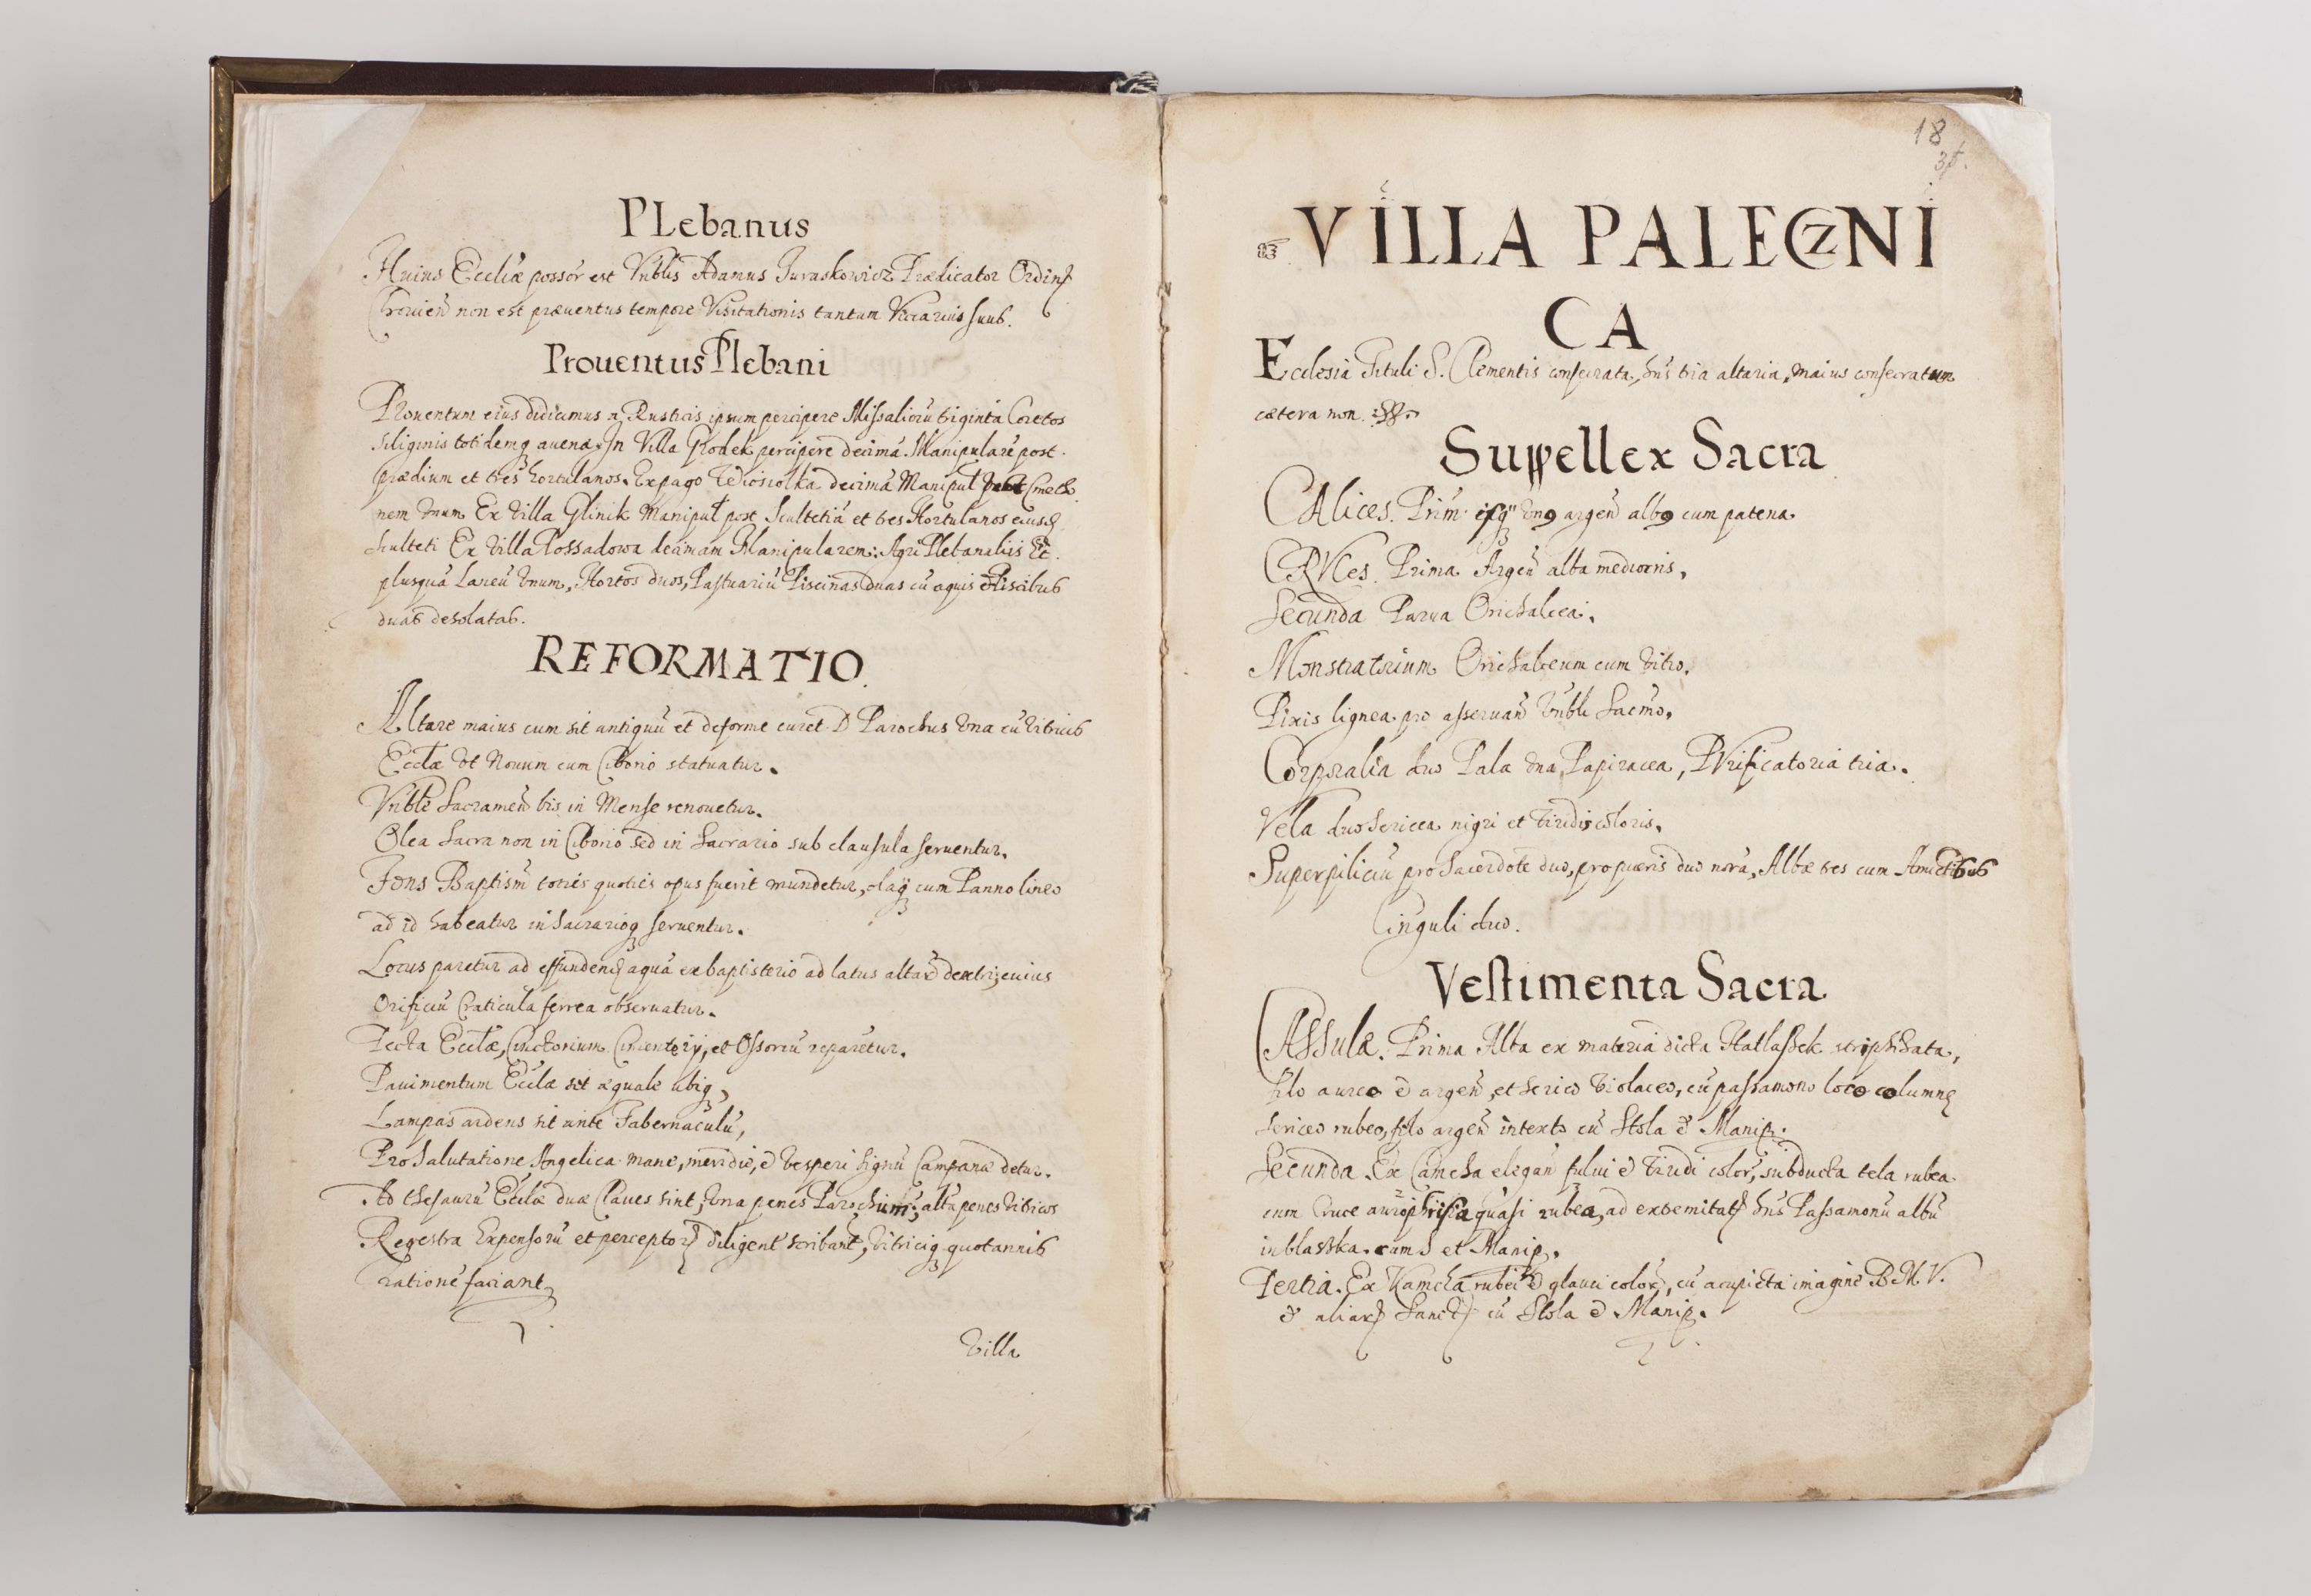 PLebanus
Huius Eccliæ possor est Vnblis Adamus Juraskowicz Prædicator Ordinis
Crouien non est præuentus tempore Visitationis tantum Vicarius suus.
Prouentus Plebani
Prouentum eius didicimus a Rusticis ipsum percipere Missaliorū triginta Coretos
Siliginis totidemq auenæ. In Villa Grodek percipere decimā Manipularē post
prædium et tres hortulanos. Ex pago Wiosiolka decimā Manipul Cmetho
nem vnum Ex villa Glinik Manipul post Scultetiā et tres Hortulanos eiusd
Sculteti Ex Villa Possadowa decimam Manipularem: Agri Plebanaliis
plusquā Laneū vnum, Hortos duos, Pastuariū Piscinas duas cū aquis Piscibus
duas desolatas.
REFORMATIO.
Altare maius cum sit antiquū et deforme curet D Parochus vna cū vitricis
Ecclæ vt Nouum cum Ciborio statuatur.
Vnble Sacramen bis in Mense renouetur.
Olea Sacra non in Ciborio sed in Sacrario sub clausula seruentur.
Fons Baptism toties quoties opus fuerit mundetur, claq cum Panno lineo
ad id habeatur in Sacrarioq seruentur.
Locus paretur ad effundend aquā ex baptisterio ad latus altar dextri, cuius
Orificiū Craticula ferrea obseruatur.
Tecta Ecclæ, Cinctorium Cimenterij, et Ossoriū reparetur.
Pauimentum Ecclæ sit æquale ubiq,
Lampas ardens sit ante Tabernaculū,
Pro Salutatione Angelica mane, meridie, & vesperi signū Campanæ detur.
Ad thesaurū Ecclæ duæ Claues sint, vna penes Parochum, alta penes vitricos
Regestra Expensorū et perceptor diligent scribant, vitriciq quotannis
rationē faciant
Villa
18
VILLA PALECZNI
CA
Ecclesia Tituli S. Clementis consecrata, hns tria altaria, maius consecratum
cætera non.
Suppellex Sacra
CAlices. Prim vn9 argen alb9 cum patena
CRVCes. Prima Argen alta mediocris,
Secunda Parua Orichalcea.
Monstratorium Orichalceum cum vitro.
Pixis lignea pro asseruan Vnbli Sacmo.
Corporalia duo Pala vna Papiracea, PVrificatoria tria.
Vela duo Sericea nigri et viridis coloris.
Superpiliciū pro Sacerdote duo, pro pueris duo nova, Albæ tres cum Amictibus
Cinguli duo.
Vestimenta Sacra
CASSulæ. Prima Alba ex materia dicta Hatlassek
filo aureo & argen, et serico violaceo, cū passamono loco columnę
sericeo rubeo, filo argen intexto cū Stola & Manip.
Secunda. Ex Camcha elegan fului & viridi color, subducta tela rubea
cum Cruce auriphrisia quasi rubea, ad extremitat hns Passamonū albū
in blasska. cum S et Manip.
Tertia. Ex Kamcha rubei & glauci color, cū acupicta imagine B M. V.
& aliar Sanct cū Stola & Manip.